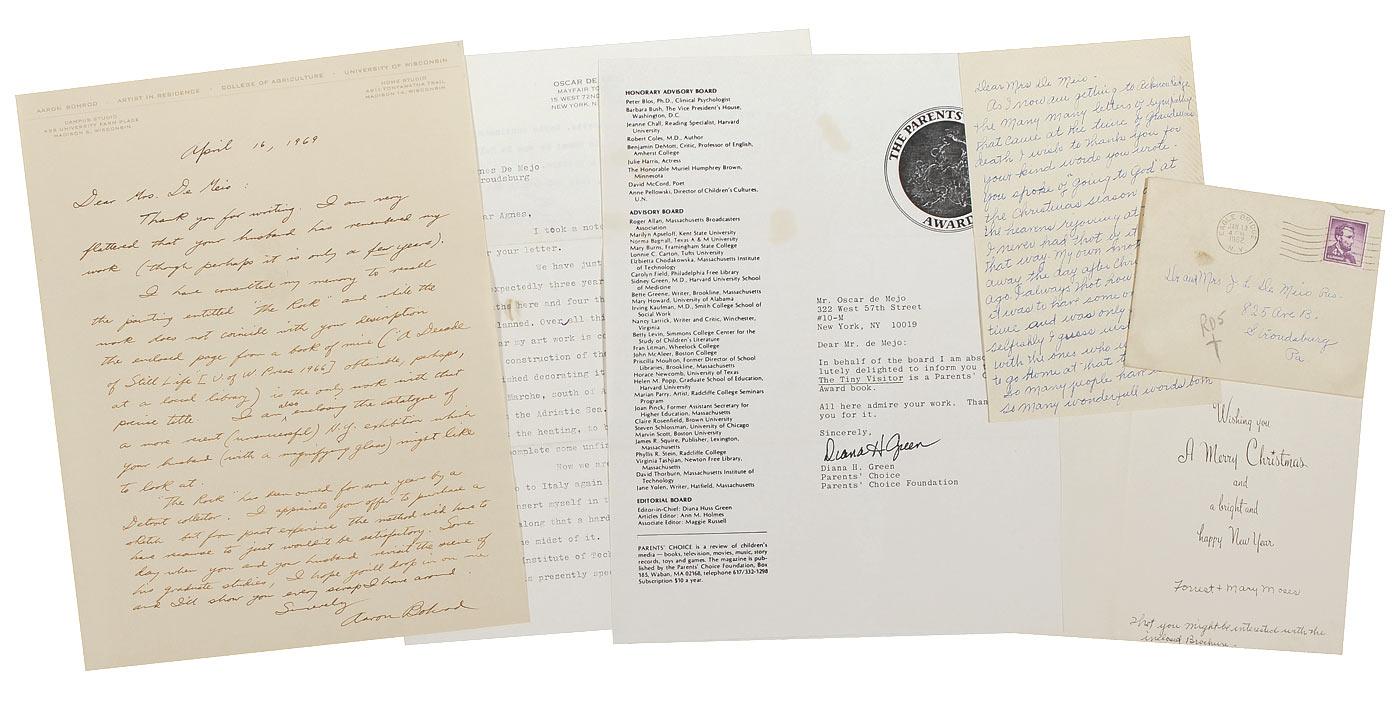 AARON BOHROD · ARTIST IN RESIDENCE · COLLEGE OF AGRICULTURE · UNIVERSITY OF WISCONSIN
CAMPUS STUDIO
432 UNIVERSITY FARM PLACE
MADISON 6, WISCONSIN
HOME STUDIO
4811 TONYAWATHA TRAIL
MADISON 14, WISCONSIN
April 16, 1969
Dear Mrs. De Meio:
Thank you for writing. I am very
flattered that your husband has remembered my
work (though perhaps it is only a few years).
I have consulted my memory to recall
the painting entitled "The Rock" and while the
work does not coincide with your description
the enclosed page from a book of mine ("A Decade
of Still Life [U. of W. Press 1966] obtainable, perhaps,
at a local library) is the only work with that
precise title. I am also enclosing the catalogue of
a more recent (unsuccessful) N.Y. exhibition which
your husband (with a magnifying glass) might like
to look at.
"The Rock" has been owned for some years by a
Detroit collector. I appreciate your offer to purchase a
sketch but from past experience the method we'd have to
have recourse to just wouldn't be satisfactory. Some
day when you and your husband revisit the scene of
his graduate studies, I hope you'll drop in on me
and I'll show you every scrap I have around
Sincerely
Aaron Bohrod
OSCAR DE
MAYFAIR TO
15 WEST 72ND
NEW YORK, N
nes De Mejo
roudsburg
ar Agnes,
I took a note
r your letter.
We have just
xpectedly three year
ths here and four th
lanned. Over all thi
ar my art work is c
construction of the
ished decorating it
Marche, south of A
the Adriatic Sea.
the heating, so b
omplete some unfi
Now we are
o to Italy again
nsert myself in t
along that a hard
he midst of it.
nstitute of Tech
is presently spe
HONORARY ADVISORY BOARD
Peter Blos, Ph.D., Clinical Psychologist
Barbara Bush, The Vice President's House,
Washington, D.C.
Jeanne Chall, Reading Specialist, Harvard
University
Robert Coles, M.D., Author
Benjamin DeMott, Critic, Professor of English,
Amherst College
Julie Harris, Actress
The Honorable Muriel Humphrey Brown,
Minnesota
David McCord, Poet
Anne Pellowski, Director of Children's Cultures,
U.N.
ADVISORY BOARD
Roger Allan, Massachusetts Broadcasters
Association
Marilyn Apseloff, Kent State University
Norma Bagnall, Texas A & M University
Mary Burns, Framingham State College
Lonnie C. Carton, Tufts University
Elzbieta Chodakowska, Massachusetts Institute
of Technology
Carolyn Field, Philadelphia Free Library
Sidney Green, M.D., Harvard University School
of Medicine
Bette Greene, Writer, Brookline, Massachusetts
Mary Howard, University of Alabama
Irving Kaufman, M.D., Smith College School of
Social Work
Nancy Larrick, Writer and Critic, Winchester,
Virginia
Betty Levin, Simmons College Center for the
Study of Children's Literature
Fran Litman, Wheelock College
John McAleer, Boston College
Priscilla Moulton, Former Director of School
Libraries, Brookline, Massachusetts
Horace Newcomb, University of Texas
Helen M. Popp, Graduate School of Education,
Harvard University
Marian Parry, Artist, Radcliffe College Seminars
Program
Joan Pinck, Former Assistant Secretary for
Higher Education, Massachusetts
Claire Rosenfield, Brown University
Steven Schlossman, University of Chicago
Marvin Scott, Boston University
James R. Squire, Publisher, Lexington,
Massachusetts
Phyllis R. Stein, Radcliffe College
Virginia Tashjian, Newton Free Library,
Massachusetts
David Thorburn, Massachusetts Institute of
Technology
Jane Yolen, Writer, Hatfield, Massachusetts
EDITORIAL BOARD
Editor-in-Chief: Diana Huss Green
Articles Editor: Ann M. Holmes
Associate Editor: Maggie Russell
PARENTS' CHOICE is a review of children's
media — books, television, movies, music, story
records, toys and games. The magazine is pub-
lished by the Parents' Choice Foundation, Box
185, Waban, MA 02168, telephone 617/332-1298
Subscription $10 a year.
THE PARENTS'
AWARD
Mr. Oscar de Mejo
322 West 57th Street
#10-M
New York, NY 10019
Dear Mr. de Mejo:
In behalf of the board I am abso
lutely delighted to inform you t
The Tiny Visitor is a Parents' C
Award book.
All here admire your work. Than
you for it.
Sincerely,
Diana H Green
Diana H. Green
Parents' Choice
Parents' Choice Foundation
Dear Mrs De Meio -
As I now am getting to Acknowledge
the Many Many letters of sympathy
that came at the time of Grandma's
death I wish to thank you for
your kind words you wrote.
You spoke of "going to God" at
the Christmas season
the heavens rejoicing at
I never had that as it
that way. My own mot
away the day after Chris
ago. I always that how
it was to have some on
time and was only
selfishly I guess wis
with the ones who w
to go Home at that t
So many people have
so many wonderfull words both
EAGLE BRIDGE
JAN 13
4 PM
1962
N.Y.
Dr and Mrs J L De Meio Res-
825 Ave B.
Stroudsburg
Pa
RD5
Wishing you
A Merry Christmas
and
a bright and
happy New Year
Forrest + Mary Moses
Thot you might be interested with the
inclosed Brochure.